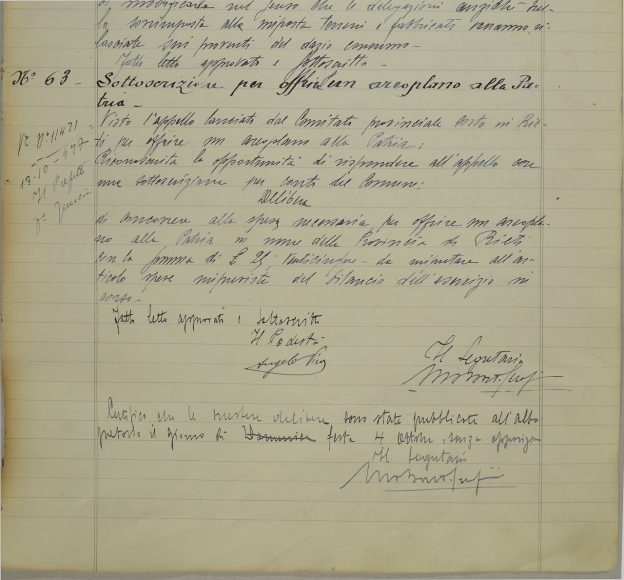 di modificarla nel senso che le delegazioni anziché sulla
sovrimposta alla imposta terreni e fabbricati saranno ri-
lasciate sui proventi del dazio consumo -
Fatto letto approvato e sottoscritto -
N° 63 - Sottoscrizione per offrire un areoplano alla Pa-
tria -
Visto l'appello lanciato dal Comitato provinciale sorto in Rie-
ti per offrire un areoplano alla Patria;
Riconosciuta la opportunità di rispondere all'appello con
una sottoscrizione per conto del Comune;
Delibera
di concorrere alla spesa necessaria per offrire un areopla-
no alla Patria in nome della Provincia di Rieti,
con la somma di £ 25 venticinque - da imputare all'ar-
ticolo spese impreviste del bilancio dell'esercizio in
corso -
Fatto letto approvato e sottoscritto
Il Podestà
Angelo
Il Segretario
N° 11471
13-10-927
Il Prefetto
Certifico che le suestese delibere sono state pubblicate all'albo
pretorio il giorno di Domenica festa 4 ottobre, senza opposizioni
Il Segretario